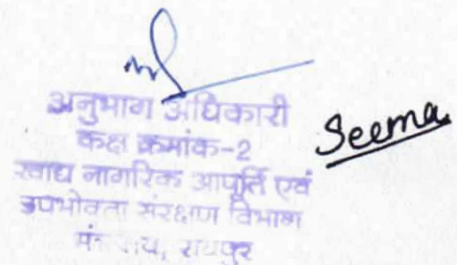 अनुभाग अधिकारी
कक्ष क्रमांक-2
खाद्य नागरिक आपूर्ति एवं
उपभोक्ता संरक्षण विभाग
रायपुर
Seema